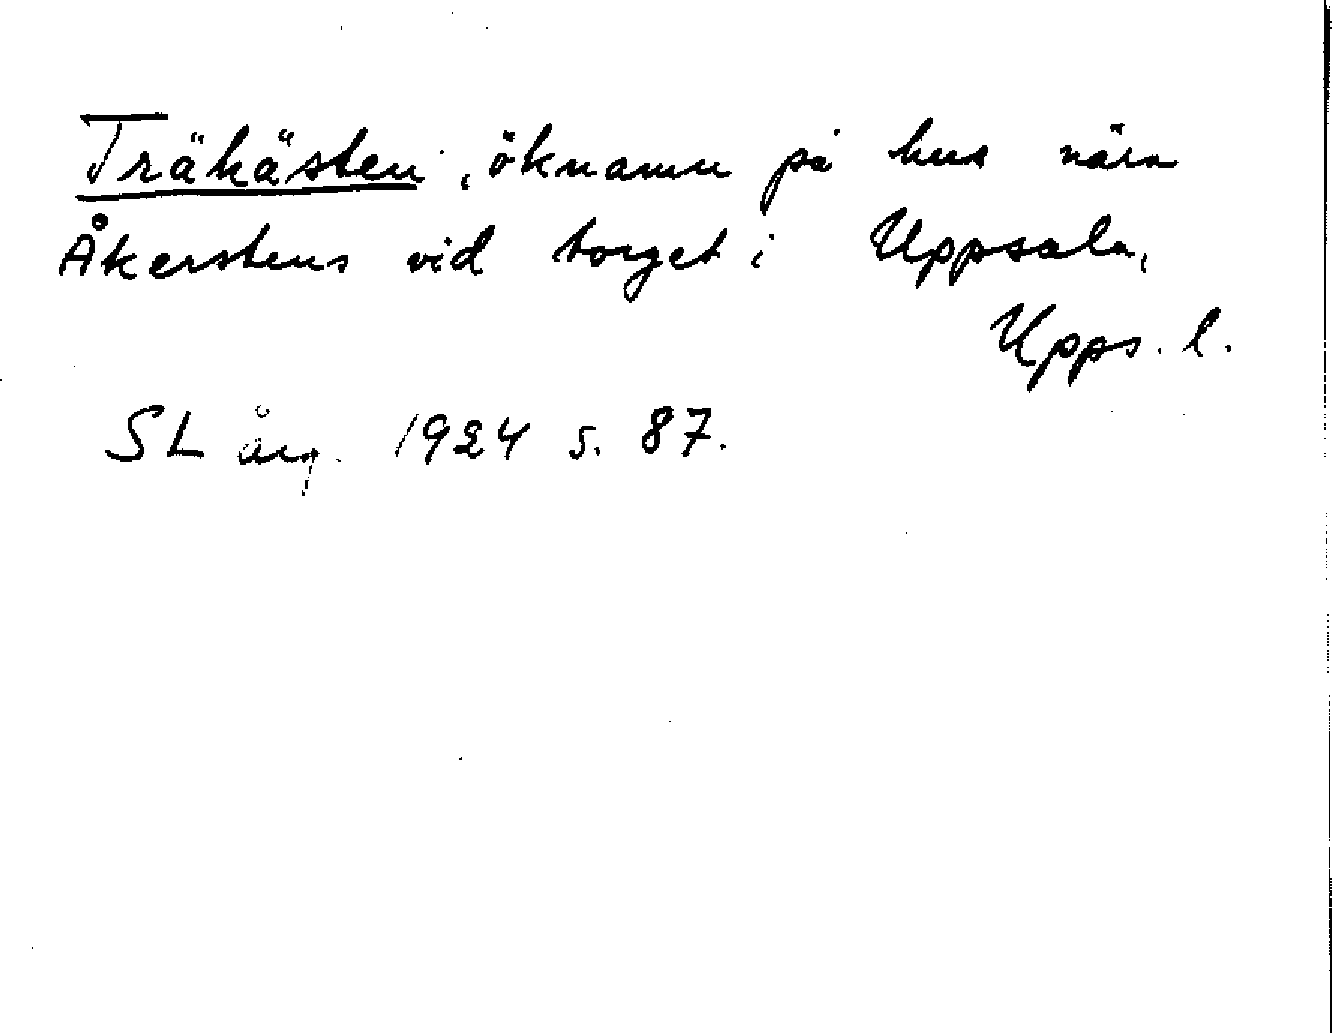 Trähästen, öknamn på hus nära
Åkerstens vid torget i Uppsala,
Upps. l.
SL årg. 1924 s. 87.